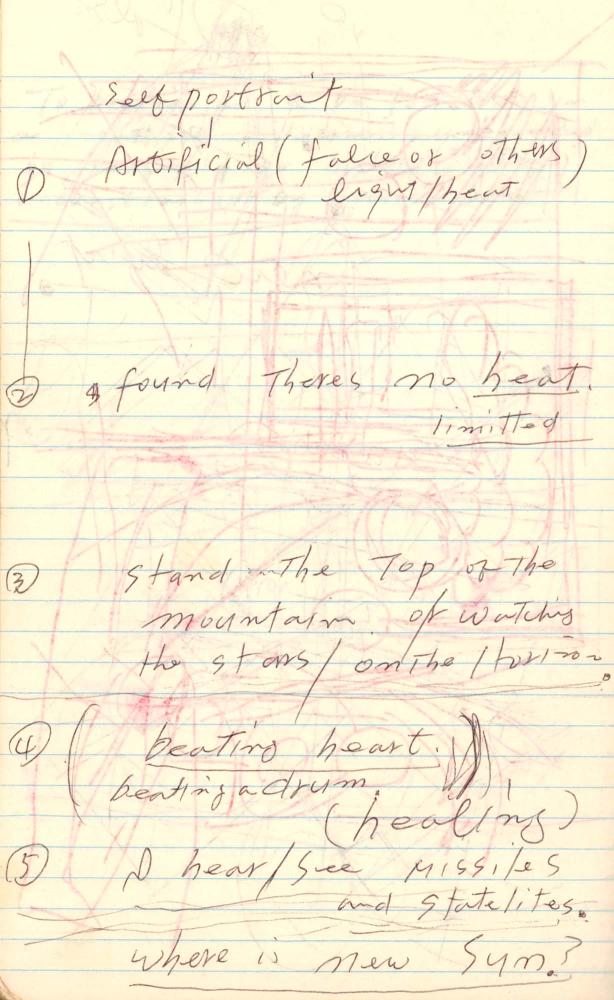 Self portrait
Artificial (falce or others)
① light/heat
② found Theres no heat.
limitted
③ stand the Top of The
mountain. of watching
the stars/on the/horizon.
④ (beating heart.)
beating a drum.
(healing)
⑤ I hear/See Missiles
and statelites.
where is new Sun?